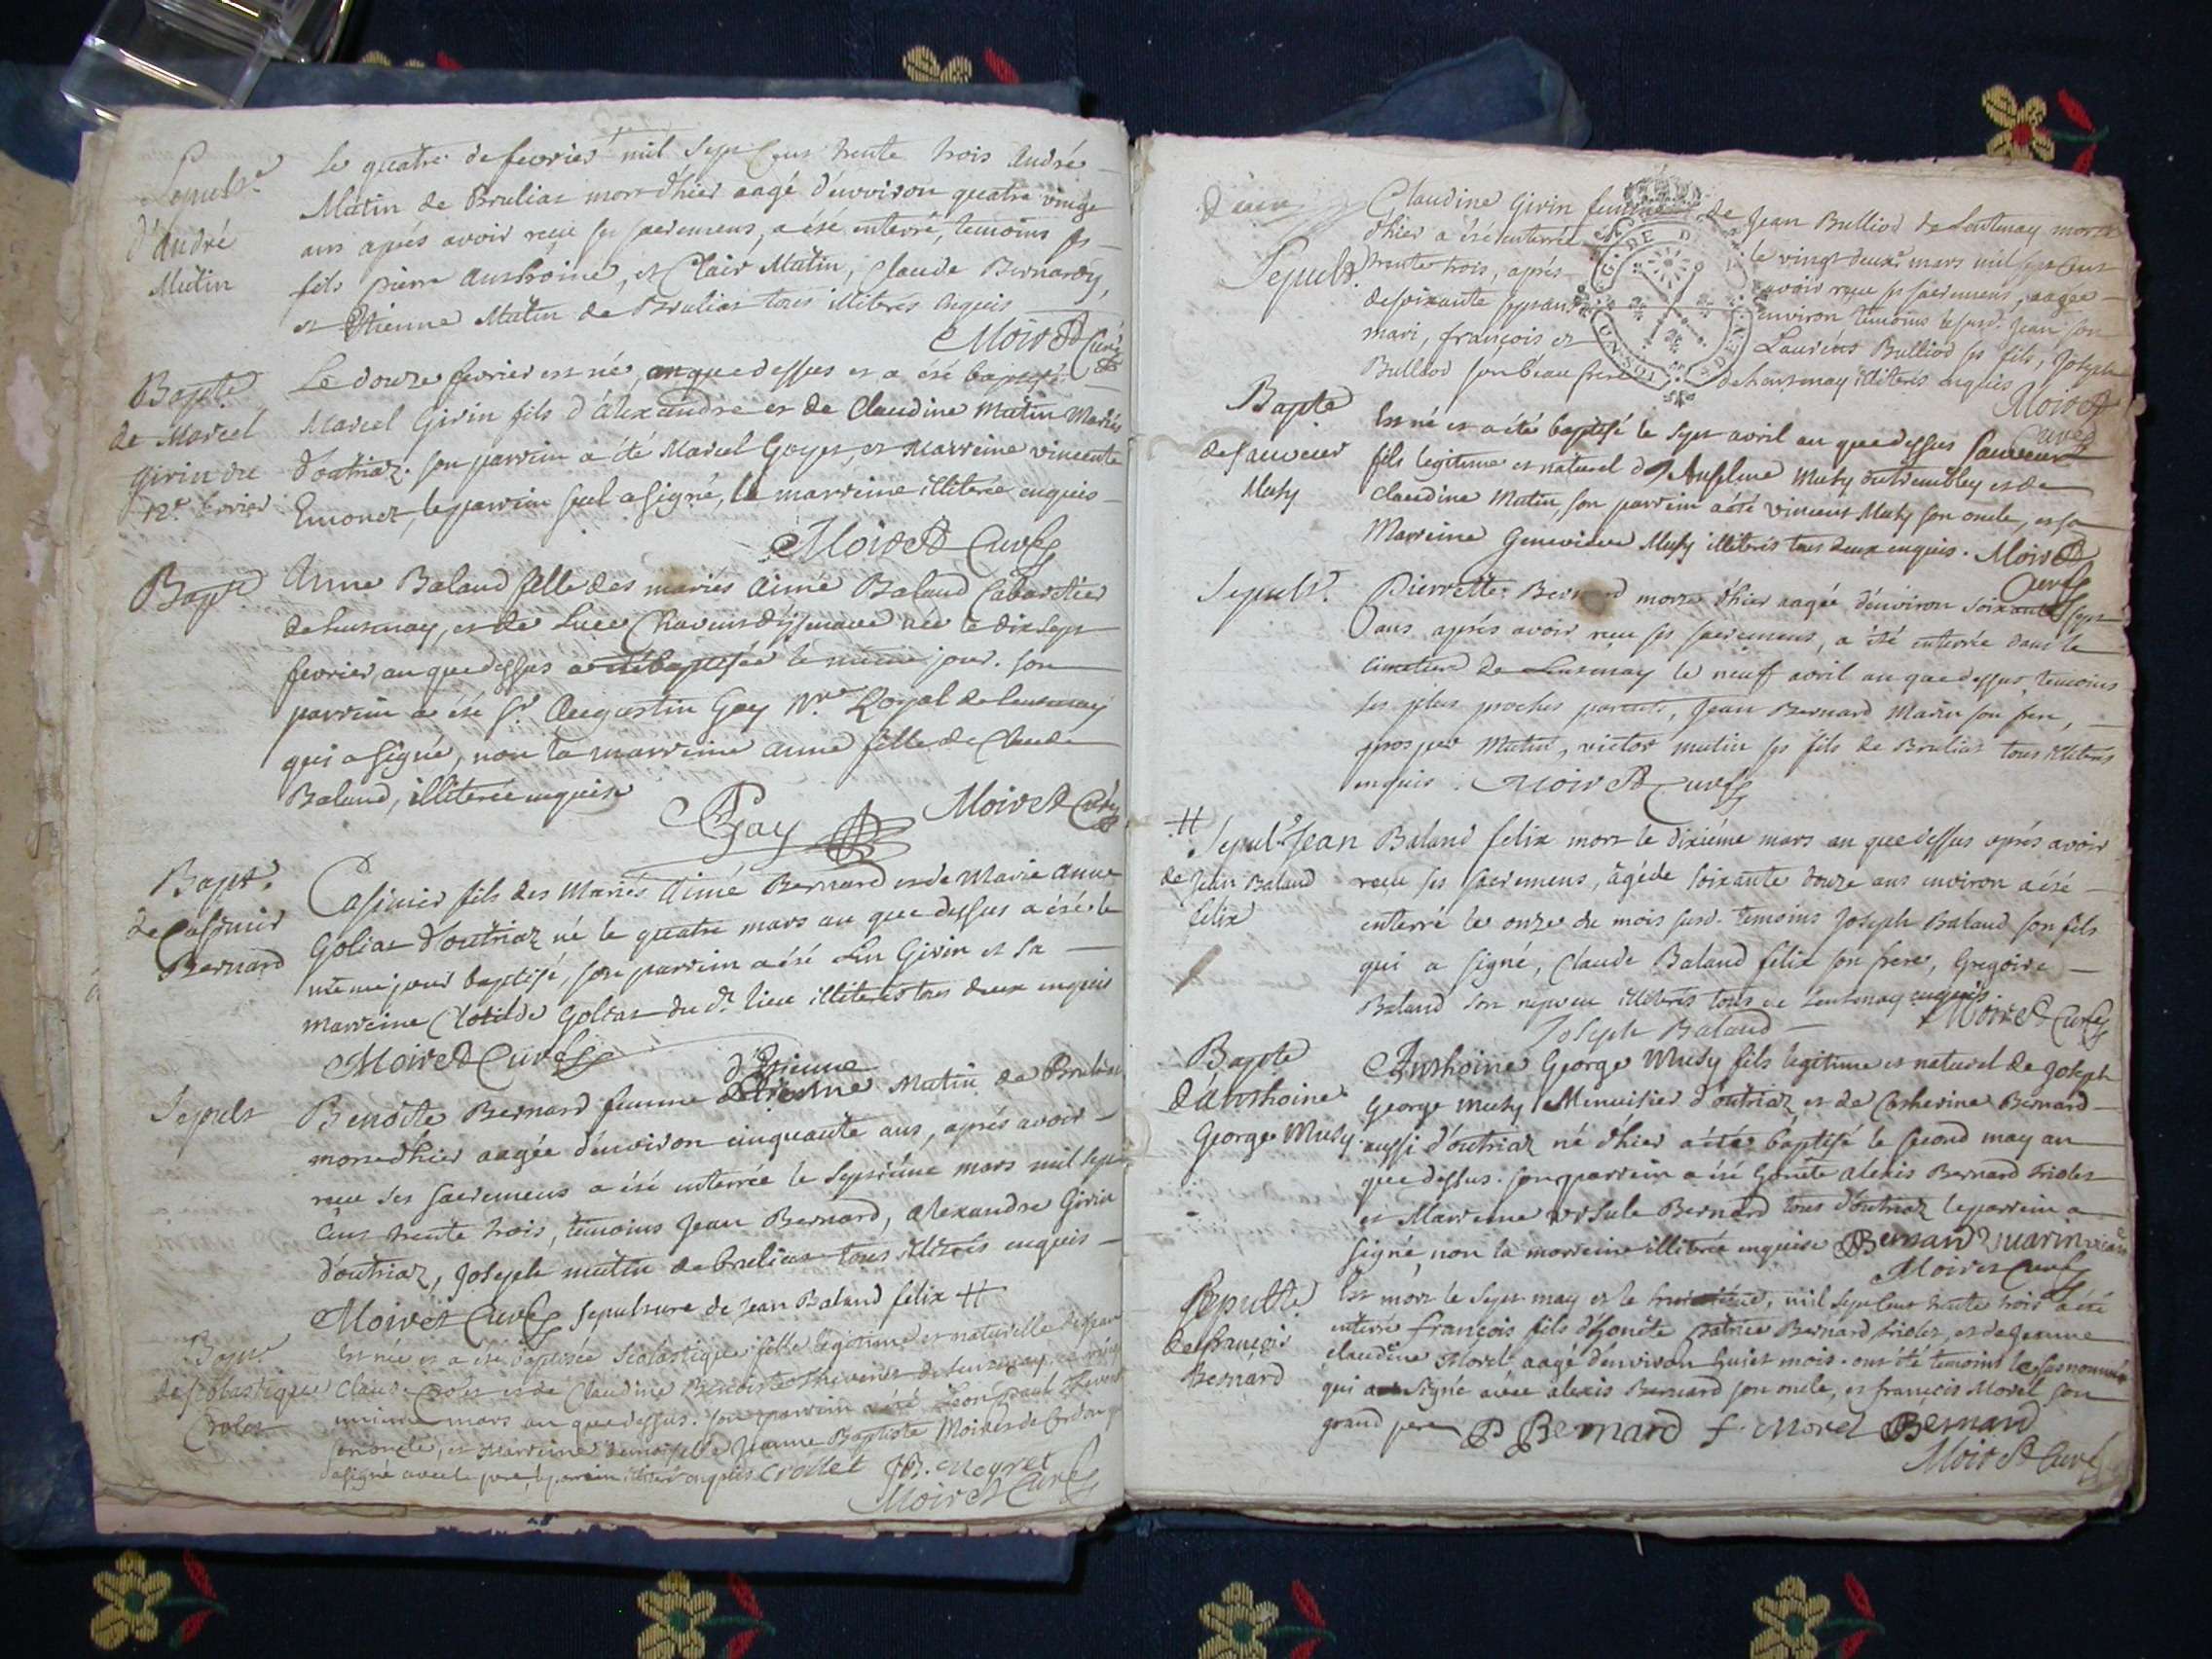 Sepult.e
d'andré
Mutin
Le quatre de fevrier mil sept cens trente trois andré
Mutin de Brulias mort d'hier aagé d'environ quatre vingt
ans aprés avoir reçu ses sacremens, a été enterré, temoins ses
fils pierre anthoine, et Clair Mutin, Claude Bernardy,
et Etienne Mutin de Brulias tous illiterés enquis
Moiret Curé
Bapte
de Marcel
Girin du
12e fevrier
Le douze fevrier est né, an que dessus et a été baptisé
Marcel Girin fils d'alexandre et de Claudine Mutin Mariés
d'outriaz. son parrein a été Marcel Goyet, et Marreine vincente
Emonet, le parrein seul a signé, la marreine illiterée enquis
Moiret Curé
Bapte
Anne Baland fille des mariés aimé Baland Cabaretier
de lantenay, et de Luce née le dix sept
fevrier, an que dessus a été baptisée le même jour. son
parrein a été Sr. Augustin Gay Nre Royal de lantenay
qui a signé, non la marreine anne fille de Claude
Baland, illiterée enquise
Gay Moiret Curé
Bapt.
de Casimir
Bernard
Casimir fils des Mariés Aimé Bernard et de Marie anne
Goliat d'outriaz né le quatre mars an que dessus a été le
même jour baptisé, son parrein a été Lin Girin et sa
marreine Clotilde Goliat du d. lieu illiterés tous deux enquis
Moiret Curé
Sepult
d'Etienne
Benoite Bernard femme Mutin de Brulias
morte d'hier aagée d'environ cinquante ans, aprés avoir
reçu ses sacremens a été enterrée le septiéme mars mil sept
cens trente trois, temoins Jean Bernard, alexandre Girin
d'outriaz, Joseph mutin de brulias tous illiterés enquis
Moiret Curé sepulture de jean Baland felix #
Bapt.
de scolastique
Crolet
Est née et a été baptisée Scolastique fille legitime et naturelle de
Claude Crolet et de Claudine Benoiste Thevenet de lantenay
mars an que dessus. son parrein a été Leon paul Thevenet
son oncle, et Marreine demoiselle Jeanne Baptiste Moiret de Cerdon
a signé avec le pere, le parrein illiteré enquis Crollet JB. Moyret
Moiret Curé
Sepult.
Claudine Girin femme de Jean Bulliod de Lantenay morte
d'hier a été enterrée le vingt deux mars mil sept cens
trente trois, aprés avoir reçu ses sacremens, aagée
de soixante sept ans environ temoins le susd. Jean son
mari, françois et Laurens Bulliod ses fils, Joseph
Bulliod son beau frere de lantenay illiterés enquis
Moiret
Curé
Bapte
de sauveur
Musy
Est né et a été baptisé le sept avril an que dessus Sauveur
fils legitime et naturel d'Anselme Musy et de
Claudine Mutin son parrein a été vincent Musy son oncle, et sa
Marreine Genevieve Musy illiterés tous deux enquis. Moiret
Curé
Sepult.
Pierrette Bernard morte d'hier aagée d'environ soixante sept
ans, aprés avoir reçu ses sacremens, a été enterrée dans le
cimetiere de Lantenay le neuf avril an que dessus, temoins
ses plus proches parents, Jean Bernard Marin son frere,
prosper Mutin, victor mutin ses fils de Brulias tous illiterés
enquis Moiret Curé
#
Sepult.
de Jean Baland
felix
Jean Baland felix mort le dixiéme mars an que dessus aprés avoir
reçu ses sacremens, âgé de soixante douze ans environ a été
enterré le onze du mois susd. temoins Joseph Baland son fils
qui a signé, Claude Baland felix son frere, Gregoire
Baland son neveu illiterés tous de Lantenay enquis
Joseph Baland Moiret Curé
Bapte
d'anthoine
George Musy
Anthoine George Musy fils legitime et naturel de Joseph
George Musy Menuisier d'outriaz et de Catherine Bernard
aussi d'outriaz né d'hier a été baptisé le second may an
que dessus. son parrein a été honête alexis Bernard
et Marreine ursule Bernard tous d'outriaz le parrein a
signé, non la marreine illiterée enquise Bernard marin
Moiret Curé
Sepulte
de françois
Bernard
Est mort le sept may et le huitiéme, mil sept cens trente trois a été
enterré françois fils d'honête patrice Bernard et de jeanne
claudine Morel aagé d'environ huit mois. ont été temoins le susnommé
qui a signé avec alexis Bernard son oncle, et françois Morel son
grand pere P Bernard f. Morel Bernard
Moiret Curé